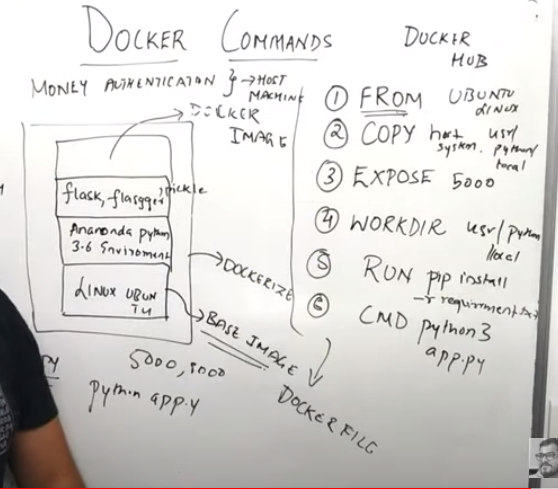 DOCKER COMMANDS
DOCKER
HUB
MONEY AUTHENTICATION } → HOST
MACHINE
DOCKER
IMAGE
flask, flasgger, pickle
Ananonda python
3.6 Environment
LINUX UBUN
TU
→ DOCKERIZE
→ BASE IMAGE
5000, 8000
python app.y
① FROM UBUNTU
LINUX
② COPY host usr/
system. python/
local
③ EXPOSE 5000
④ WORKDIR usr/python
/local
⑤ RUN pip install
-r requirment.txt
⑥ CMD python3
app.py
DOCKER FILE